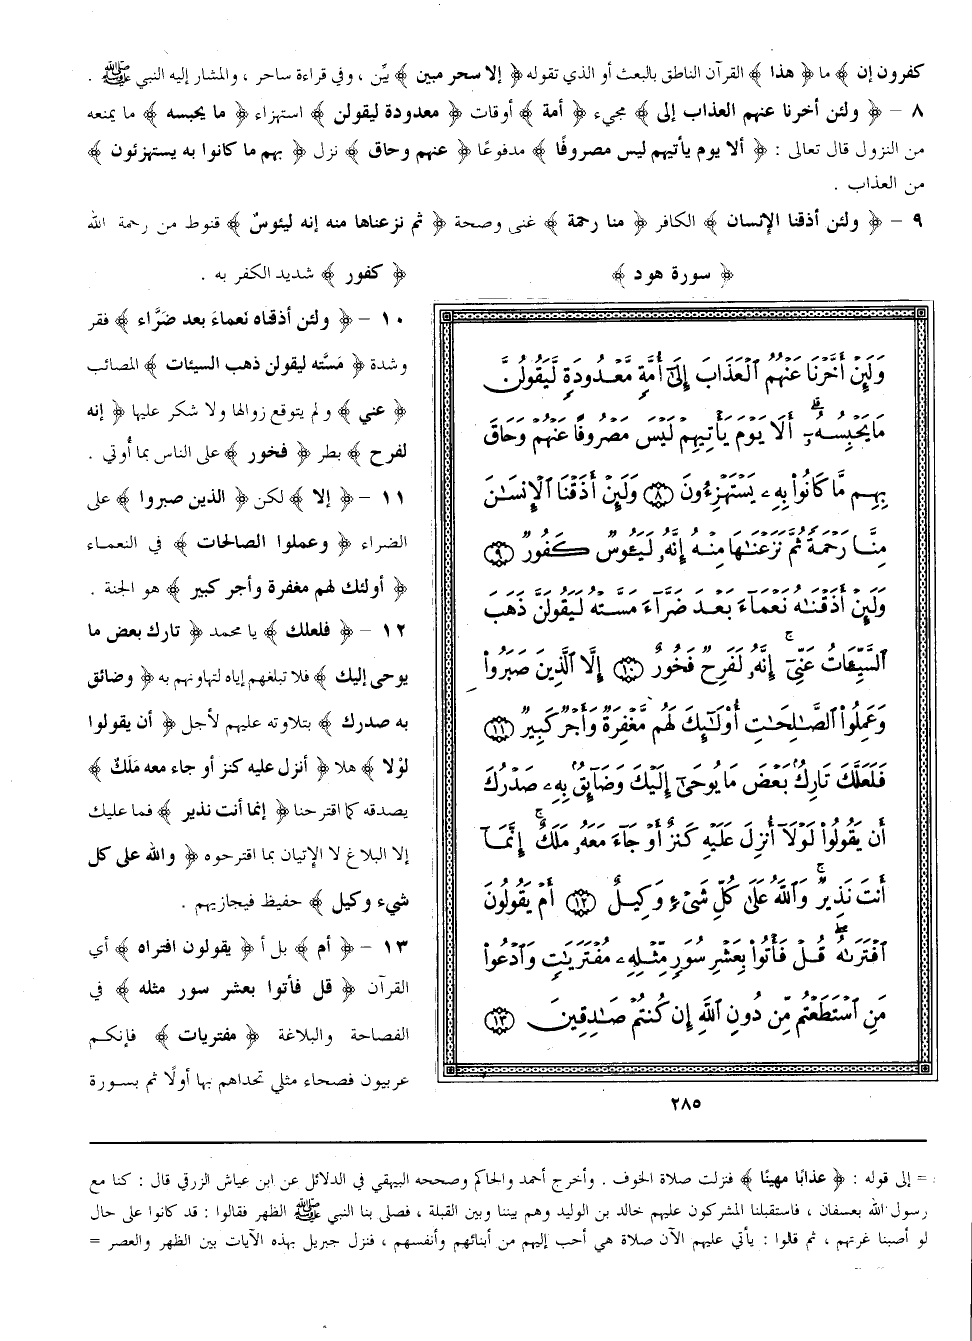 كفرون إن ﴾ ما ﴿ هذا ﴾ القرآن الناطق بالبعث أو الذي تقوله ﴿ إلا سحر مبين ﴾ بيِّن ، وفي قراءة ساحر ، والمشار إليه النبي ﷺ .
٨ – ﴿ ولئن أخرنا عنهم العذاب إلى ﴾ مجيء ﴿ أمة ﴾ أوقات ﴿ معدودة ليقولن ﴾ استهزاء ﴿ ما يحبسه ﴾ ما يمنعه
من النزول قال تعالى : ﴿ ألا يوم يأتيهم ليس مصروفًا ﴾ مدفوعًا ﴿ عنهم وحاق ﴾ نزل ﴿ بهم ما كانوا به يستهزئون ﴾
من العذاب .
٩ – ﴿ ولئن أذقنا الإنسان ﴾ الكافر ﴿ منا رحمة ﴾ غنى وصحة ﴿ ثم نزعناها منه إنه ليئوسٌ ﴾ قنوط من رحمة الله
﴿ كفور ﴾ شديد الكفر به .
١٠ – ﴿ ولئن أذقناه نَعماءَ بعد ضَرَّاء ﴾ فقر
وشدة ﴿ مَسَّته ليقولن ذهب السيئات ﴾ المصائب
﴿ عني ﴾ ولم يتوقع زوالها ولا شكر عليها ﴿ إنه
لفرح ﴾ بطر ﴿ فخور ﴾ على الناس بما أُوتي .
١١ – ﴿ إلا ﴾ لكن ﴿ الذين صبروا ﴾ على
الضراء ﴿ وعملوا الصالحات ﴾ في النعماء
﴿ أولئك لهم مغفرة وأجر كبير ﴾ هو الجنة .
١٢ – ﴿ فلعلك ﴾ يا محمد ﴿ تارك بعض ما
يوحى إليك ﴾ فلا تبلغهم إياه لتهاونهم به ﴿ وضائق
به صدرك ﴾ بتلاوته عليهم لأجل ﴿ أن يقولوا
لوْلا ﴾ هلا ﴿ أنزل عليه كنز أو جاء معه مَلَكٌ ﴾
يصدقه كما اقترحنا ﴿ إنما أنت نذير ﴾ فما عليك
إلا البلاغ لا الإتيان بما اقترحوه ﴿ والله على كل
شيء وكيل ﴾ حفيظ فيجازيهم .
١٣ – ﴿ أم ﴾ بل أ ﴿ يقولون افتراه ﴾ أي
القرآن ﴿ قل فأتوا بعشر سور مثله ﴾ في
الفصاحة والبلاغة ﴿ مفتريات ﴾ فإنكم
عربيون فصحاء مثلي تحداهم بها أولًا ثم بسورة
﴿ سورة هود ﴾
وَلَئِنْ أَخَّرْنَا عَنْهُمُ ٱلْعَذَابَ إِلَىٰٓ أُمَّةٍ مَّعْدُودَةٍ لَّيَقُولُنَّ
مَا يَحْبِسُهُۥٓ ۗ أَلَا يَوْمَ يَأْتِيهِمْ لَيْسَ مَصْرُوفًا عَنْهُمْ وَحَاقَ
بِهِم مَّا كَانُوا۟ بِهِۦ يَسْتَهْزِءُونَ ٨ وَلَئِنْ أَذَقْنَا ٱلْإِنسَـٰنَ
مِنَّا رَحْمَةً ثُمَّ نَزَعْنَـٰهَا مِنْهُ إِنَّهُۥ لَيَـُٔوسٌ كَفُورٌ ٩
وَلَئِنْ أَذَقْنَـٰهُ نَعْمَآءَ بَعْدَ ضَرَّآءَ مَسَّتْهُ لَيَقُولَنَّ ذَهَبَ
ٱلسَّيِّـَٔاتُ عَنِّىٓ ۚ إِنَّهُۥ لَفَرِحٌ فَخُورٌ ١٠ إِلَّا ٱلَّذِينَ صَبَرُوا۟
وَعَمِلُوا۟ ٱلصَّـٰلِحَـٰتِ أُو۟لَـٰٓئِكَ لَهُم مَّغْفِرَةٌ وَأَجْرٌ كَبِيرٌ ١١
فَلَعَلَّكَ تَارِكٌۢ بَعْضَ مَا يُوحَىٰٓ إِلَيْكَ وَضَآئِقٌۢ بِهِۦ صَدْرُكَ
أَن يَقُولُوا۟ لَوْلَآ أُنزِلَ عَلَيْهِ كَنزٌ أَوْ جَآءَ مَعَهُۥ مَلَكٌ ۚ إِنَّمَآ
أَنتَ نَذِيرٌ ۚ وَٱللَّهُ عَلَىٰ كُلِّ شَىْءٍ وَكِيلٌ ١٢ أَمْ يَقُولُونَ
ٱفْتَرَىٰهُ ۖ قُلْ فَأْتُوا۟ بِعَشْرِ سُوَرٍ مِّثْلِهِۦ مُفْتَرَيَـٰتٍ وَٱدْعُوا۟
مَنِ ٱسْتَطَعْتُم مِّن دُونِ ٱللَّهِ إِن كُنتُمْ صَـٰدِقِينَ ١٣
٢٨٥
= إلى قوله : ﴿ عذابًا مهينًا ﴾ فنزلت صلاة الخوف . وأخرج أحمد والحاكم وصححه البيهقي في الدلائل عن ابن عياش الزرقي قال : كنا مع
رسول الله بعسفان ، فاستقبلنا المشركون عليهم خالد بن الوليد وهم بيننا وبين القبلة ، فصلى بنا النبي ﷺ الظهر فقالوا : قد كانوا على حال
لو أصبنا غرتهم ، ثم قالوا : يأتي عليهم الآن صلاة هي أحب إليهم من أبنائهم وأنفسهم ، فنزل جبريل بهذه الآيات بين الظهر والعصر =